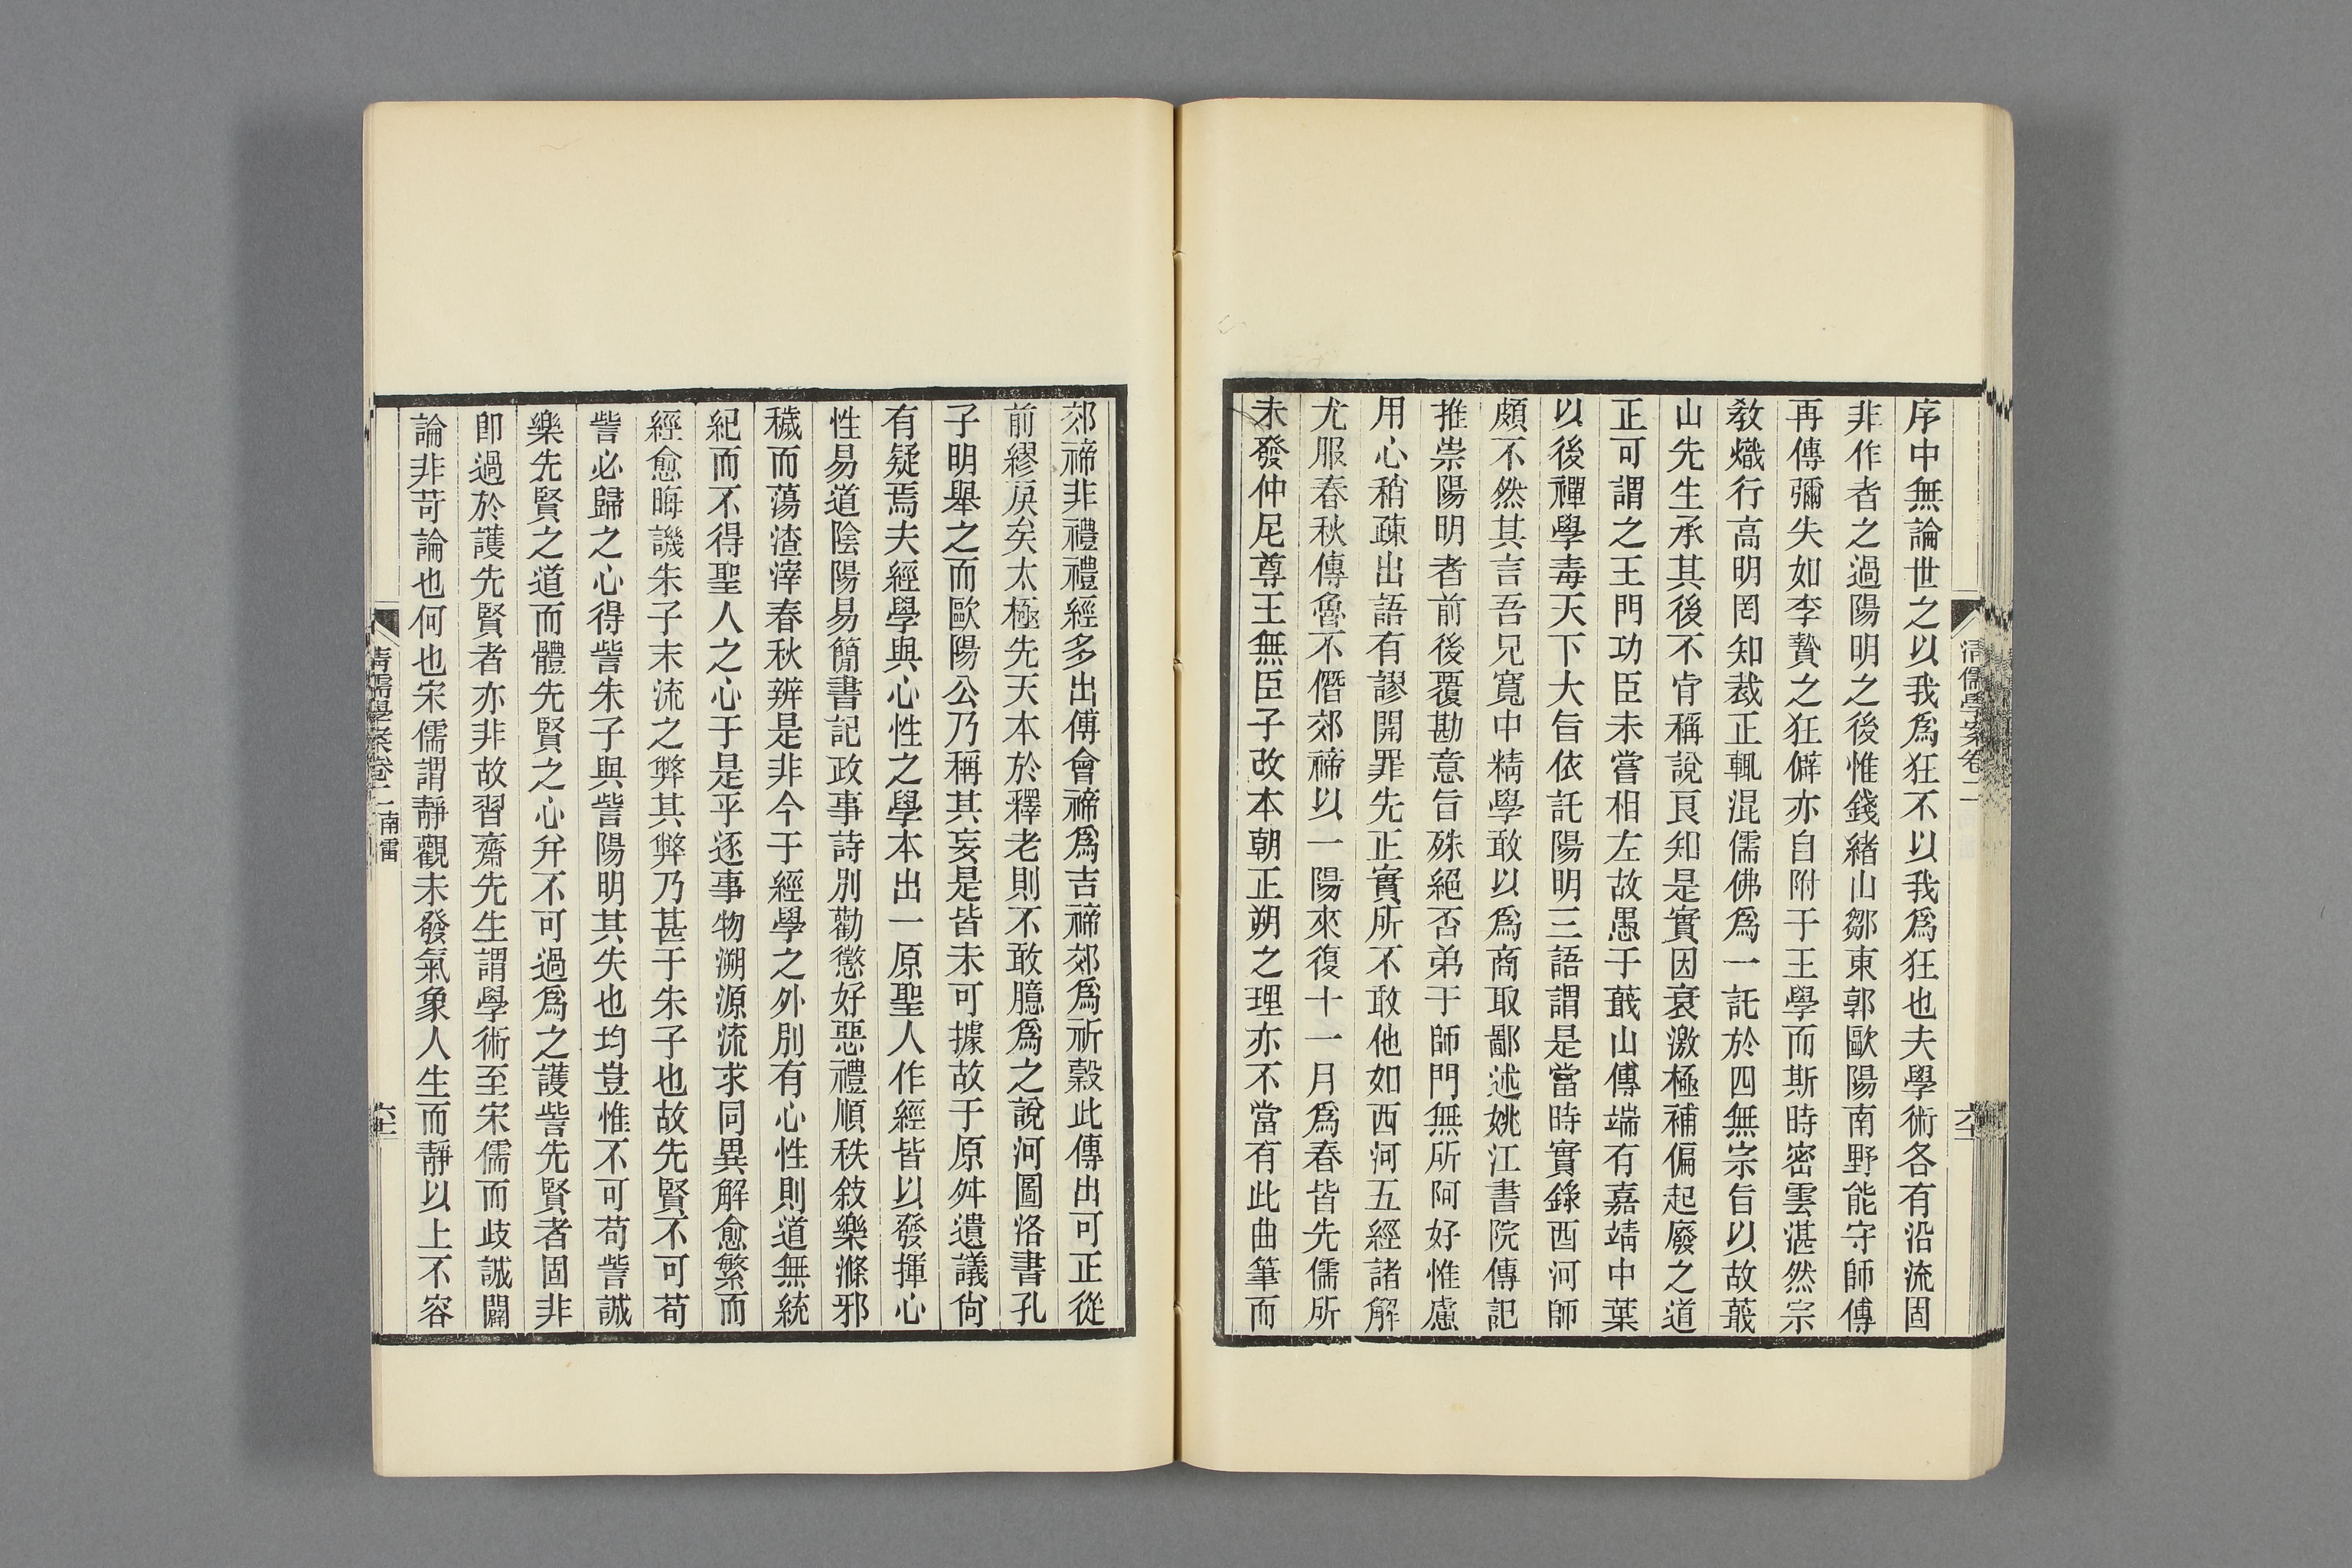 清儒學案卷二
序中無論世之以我爲狂不以我爲狂也夫學術各有沿流固
非作者之過陽明之後惟錢緒山鄒東郭歐陽南野能守師傳
再傳彌失如李贄之狂僻亦自附于王學而斯時密雲湛然宗
敎熾行高明罔知裁正輒混儒佛爲一託於四無宗旨以故蕺
山先生承其後不肯稱說良知是實因衰激極補偏起廢之道
正可謂之王門功臣未嘗相左故愚于蕺山傳端有嘉靖中葉
以後禪學毒天下大旨依託陽明三語謂是當時實錄西河師
頗不然其言吾兄寬中精學敢以爲商取鄙述姚江書院傳記
推崇陽明者前後覆勘意旨殊絕否弟于師門無所阿好惟慮
用心稍疎出語有謬開罪先正實所不敢他如西河五經諸解
尤服春秋傳魯不僭郊禘以一陽來復十一月爲春皆先儒所
未發仲尼尊王無臣子改本朝正朔之理亦不當有此曲筆而
郊禘非禮禮經多出傅會禘爲吉禘郊爲祈穀此傳出可正從
前繆戾矣太極先天本於釋老則不敢臆爲之說河圖洛書孔
子明舉之而歐陽公乃稱其妄是皆未可據故于原舛遺議尙
有疑焉夫經學與心性之學本出一原聖人作經皆以發揮心
性易道陰陽易簡書記政事詩別勸懲好惡禮順秩敍樂滌邪
穢而蕩渣滓春秋辨是非今于經學之外別有心性則道無統
紀而不得聖人之心于是乎逐事物溯源流求同異解愈繁而
經愈晦譏朱子末流之弊其弊乃甚于朱子也故先賢不可苟
訾必歸之心得訾朱子與訾陽明其失也均豈惟不可苟訾誠
樂先賢之道而體先賢之心幷不可過爲之護訾先賢者固非
卽過於護先賢者亦非故習齋先生謂學術至宋儒而歧誠闢
論非苛論也何也宋儒謂靜觀未發氣象人生而靜以上不容
清儒學案卷二 南雷